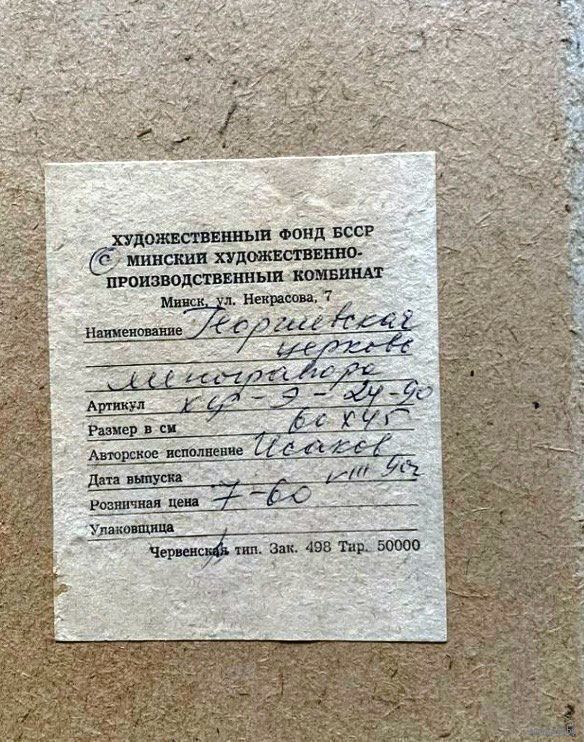 ХУДОЖЕСТВЕННЫЙ ФОНД БССР
© МИНСКИЙ ХУДОЖЕСТВЕННО-
ПРОИЗВОДСТВЕННЫЙ КОМБИНАТ
Минск, ул. Некрасова, 7
Наименование Георгиевская
церковь
Артикул ХФ-Э-24-90
Размер в см 60х45
Авторское исполнение Исаков
Дата выпуска VIII 90г
Розничная цена 7-60
Упаковщица
Червенская тип. Зак. 498 Тир. 50000